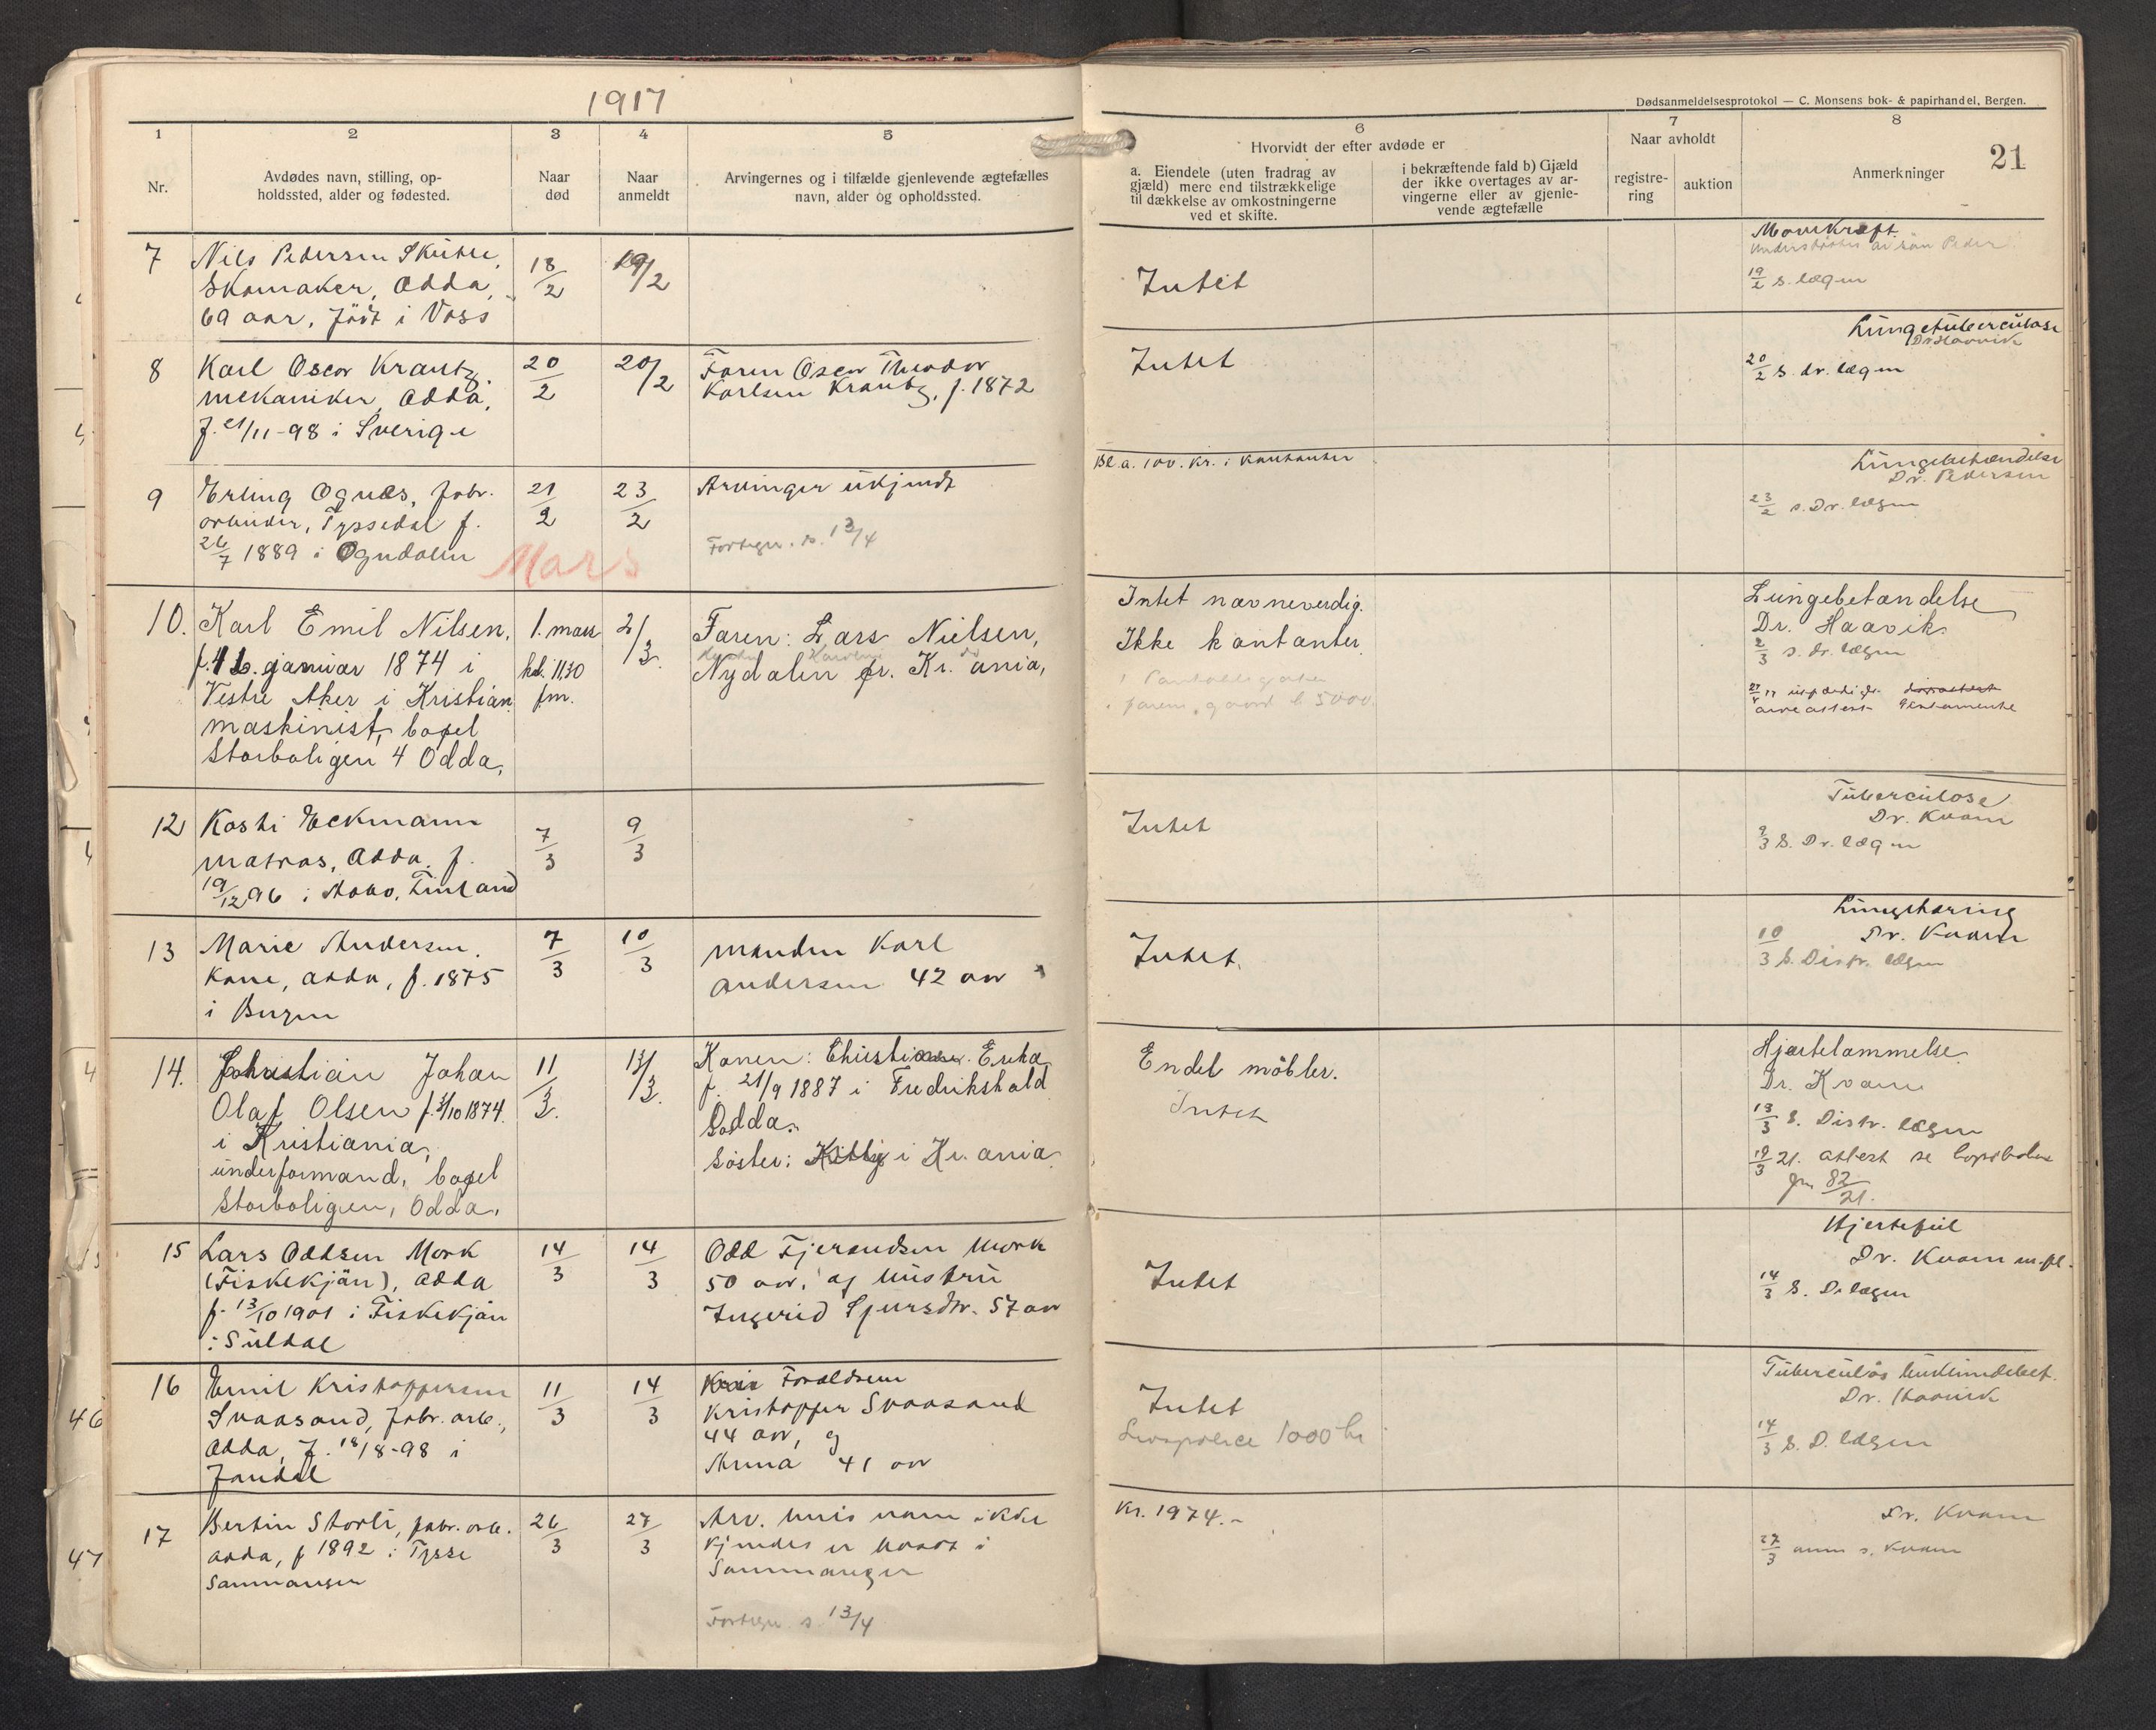 1917
Dødsanmeldelsesprotokol — C. Monsens bok- & papirhandel, Bergen.
21
1 2 3 4 5 6 7 8
Nr.
Avdødes navn, stilling, op-
holdssted, alder og fødested.
Naar
død
Naar
anmeldt
Arvingernes og i tilfælde gjenlevende ægtefælles
navn, alder og opholdssted.
Hvorvidt der efter avdøde er
a. Eiendele (uten fradrag av
gjæld) mere end tilstrækkelige
til dækkelse av omkostningerne
ved et skifte.
i bekræftende fald b) Gjæld
der ikke overtages av ar-
vingerne eller av gjenle-
vende ægtefælle
Naar avholdt
registre-
ring
auktion
Anmerkninger
7
Nils Pedersen Skutle,
Skomaker, Odda,
69 aar, födt i Voss
18/2
19/2
Intet
Mavekræft.
19/2 s. lægen
8
Karl Oscar Krantz,
mekaniker, Odda,
f. 21/11-98 i Sverige
20/2
20/2
Faren Oscar Theodor
Karlsen Krantz, f. 1872
Intet
Lungetuberculose
Dr Haavik
20/2 s. dr. lægen
9
Erling Ognæs, fabr.
arbeider, Tyssedal f.
26/7 1889 i Ogndalen
21/2
23/2
Arvinger ukjendt
13/4
Bl.a. 100. kr. i kontanter
Lungebetændelse
Dr. Pedersen
23/2 s. Dr. lægen
Mars
10.
Karl Emil Nilsen,
januar 1874 i
Vestre Aker i Kristian.
maskinist, bopel
Storboligen 4 Odda,
1. mars
kl. 11.30
fm.
2/3.
Faren: Lars Nielsen,
Nydalen pr. Kr.ania,
Intet navneverdig.
Ikke kontanter.
5000
Lungebetændelse
Dr. Haavik
2/3 s. dr. lægen
12
Kosti Eckmann
matros, Odda, f.
19/12 96 i Aabo, Finland
7/3
9/3
Intet
Tuberculose
Dr. Kvam
9/3 s. Dr. lægen
13
Marie Andersen,
Kone, Odda, f. 1875
i Bergen
7/3
10/3
Manden Karl
Andersen 42 aar
Intet.
Lungetæring
Dr. Kvam
10/3 s. Distr. lægen
14.
Johan
Olaf Olsen
i Kristiania,
underformand, bopel
Storboligen, Odda.
11/3.
13/3.
Konen:
f. 21/9 1887 i Fredrikshald
Odda.
Söster: Kitty i Kr.ania.
Endel möbler.
Intet
Hjertelammelse.
Dr. Kvam
13/3 s. Distr. lægen
19/3 21. attest se kopiboken
82/21.
15
Lars Oddsen Mork
(Fiskekjön), Odda
f. 13/10 1901 i Fiskekjön
i Suldal
14/3
14/3
Odd Fjerandsen Mork
50 aar, og hustru
Ingerid Sjursdtr. 57 aar
Intet
Hjertefeil
Dr. Kvam
14/3 s. D. lægen
16
Emil Kristoffersen
Svaasand, fabr. arb.,
Odda, f. 18/8-98 i
Jondal
11/3
14/3
Foreldrene
Kristoffer Svaasand
44 aar, og
Anna 41 aar
Intet
Livspolice 1000 kr
Dr. Haavik
14/3 s. D. lægen
17
Bertin Storli, fabr. arb.
Odda, f 1892 i Tysse
Samnanger
26/3
27/3
Arv. hvis navn ikke
kjendes er bosat i
Samnanger
13/4
Kr. 1974.-
Dr. Kvam
27/3 anm s. Kvam
46
47